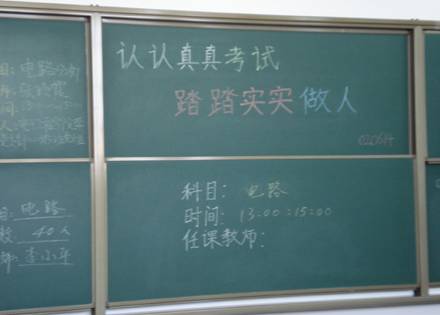 认认真真考试
踏踏实实做人
020614
科目: 电路
时间: 13:00:15:00
任课教师:
目: 电路分析
目: 电路
数: 40人
师: 李小平